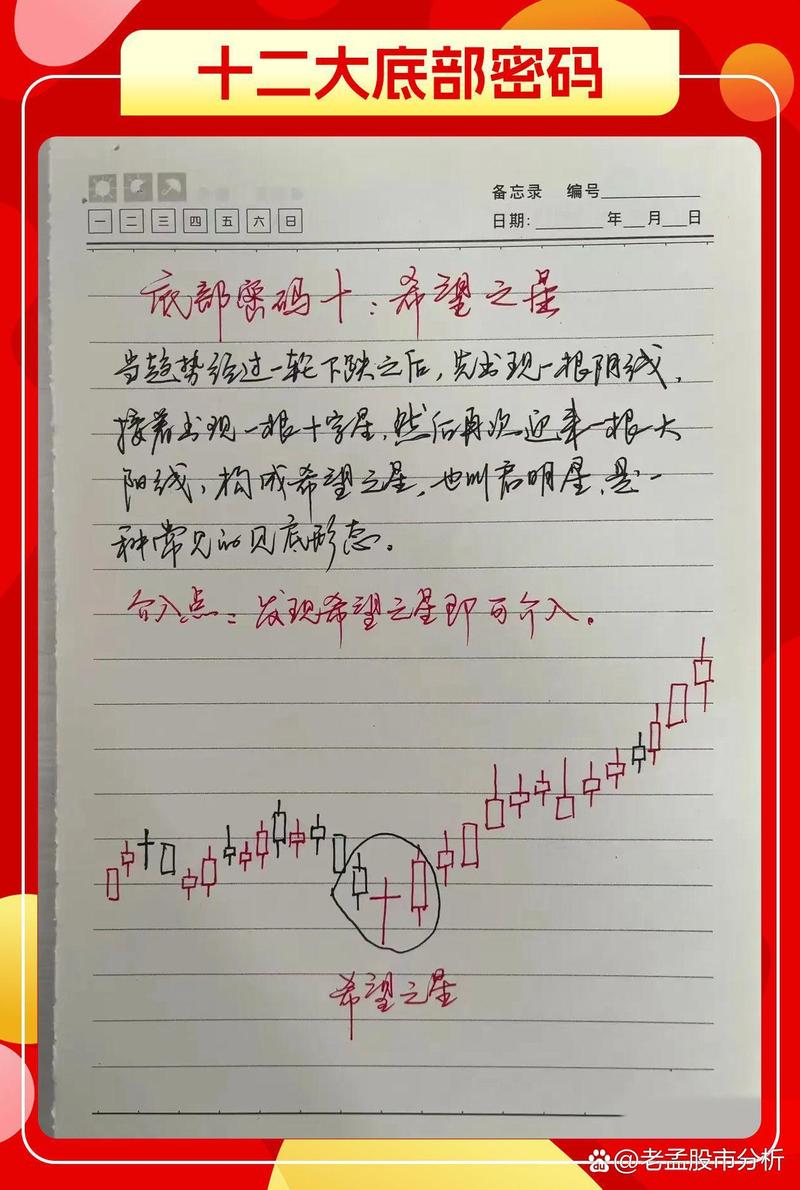 十二大底部密码
备忘录 编号
一 二 三 四 五 六 日
日期: 年 月 日
底部密码十：希望之星
当趋势经过一轮下跌之后，先出现一根阴线，
接着出现一根十字星，然后再次迎来一根大
阳线，构成希望之星，也叫启明星，是一
种常见的见底形态。
介入点：发现希望之星即可介入。
希望之星
@老孟股市分析